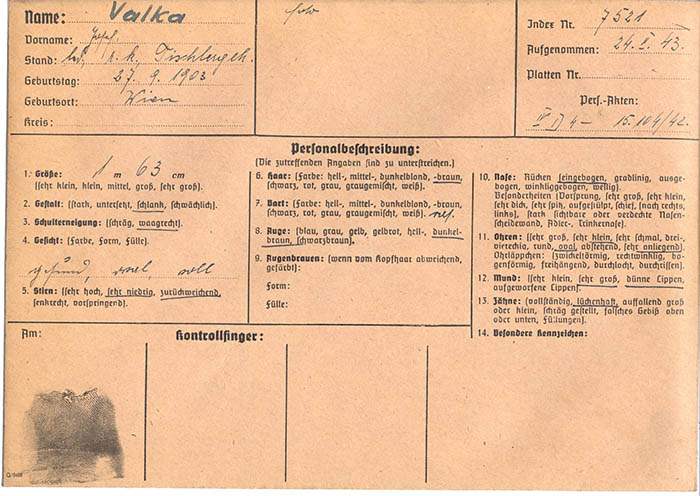 Name: Valka
Vorname: Josef
Stand: led. r. k. Tischlergeh.
Geburtstag: 27. 9. 1903
Geburtsort: Wien
Kreis:
Index Nr. 7521
Aufgenommen: 24. I. 43.
Platten Nr.
Pers.-Akten:
15.104/42.
Personalbeschreibung:
(Die zutreffenden Angaben sind zu unterstreichen.)
1. Größe: 1 m 63 cm
(sehr klein, klein, mittel, groß, sehr groß).
2. Gestalt: (stark, untersetzt, schlank, schwächlich).
3. Schulterneigung: (schräg, waagrecht).
4. Gesicht: (Farbe, Form, Fülle).
gesund, oval, voll
5. Stirn: (sehr hoch, sehr niedrig, zurückweichend,
senkrecht, vorspringend).
6. Haar: (Farbe: hell-, mittel-, dunkelblond, -braun,
schwarz, rot, grau, graugemischt, weiß).
7. Bart: (Farbe: hell-, mittel-, dunkelblond, -braun,
schwarz, rot, grau, graugemischt, weiß).
8. Auge: (blau, grau, gelb, gelbrot, hell-, dunkel-
braun, schwarzbraun).
9. Augenbrauen: (wenn vom Kopfhaar abweichend,
gefärbt):
Form:
Fülle:
10. Nase: Rücken (eingebogen, gradlinig, ausge-
bogen, winkliggebogen, wellig).
Besonderheiten (Vorsprung, sehr groß, sehr klein,
sehr dick, sehr spitz, aufgestülpt, schief, (nach rechts,
links), stark sichtbare oder verdeckte Nasen-
scheidewand, Adler-, Trinkernase).
11. Ohren: (sehr groß, sehr klein, sehr schmal, drei-,
viereckig, rund, oval, abstehend, sehr anliegend).
Ohrläppchen: (zwickelförmig, rechtwinklig, bo-
genförmig, freihängend, durchlocht, durchrissen).
12. Mund: (sehr klein, sehr groß, dünne Lippen,
aufgeworfene Lippen).
13. Zähne: (vollständig, lückenhaft, auffallend groß
oder klein, schräg gestellt, falsches Gebiß oben
oder unten, Füllungen).
14. Besondere Kennzeichen:
Am:
Kontrollfinger: